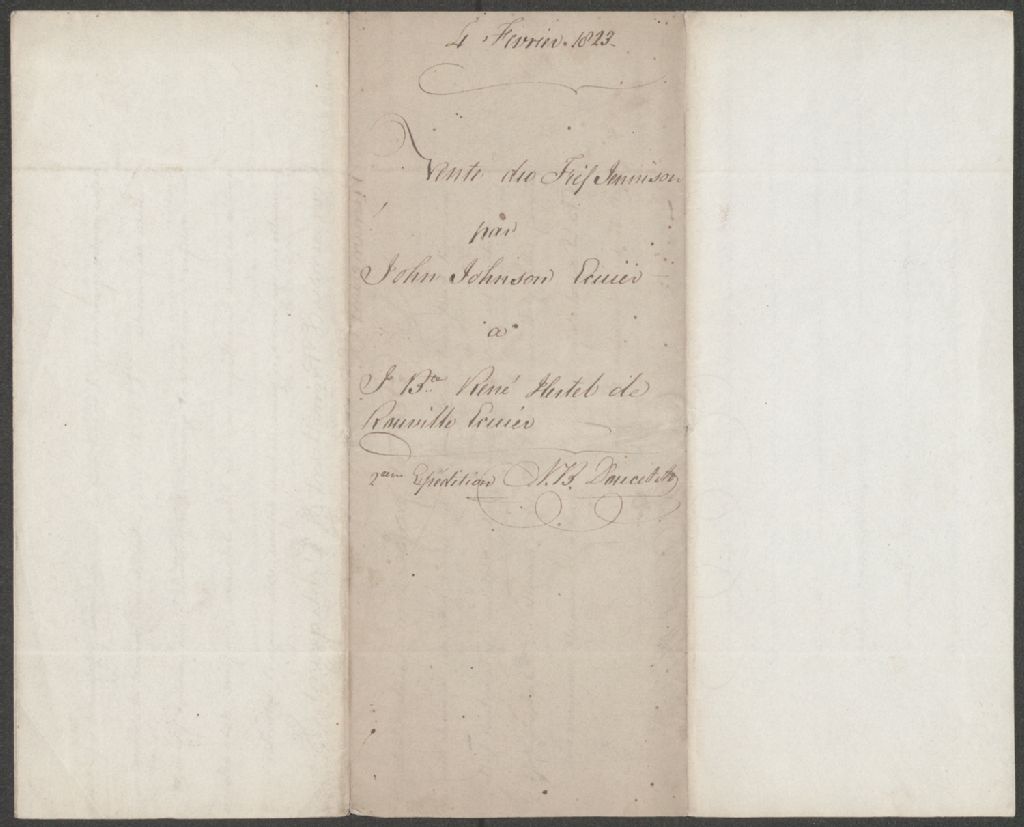 4 Fevrier. 1823.
Vente du Fief Jennison
par
John Johnson Ecuier
a
J Bte René Hertel de
Rouville Ecuier
2eme Expedition N.B. Doucet